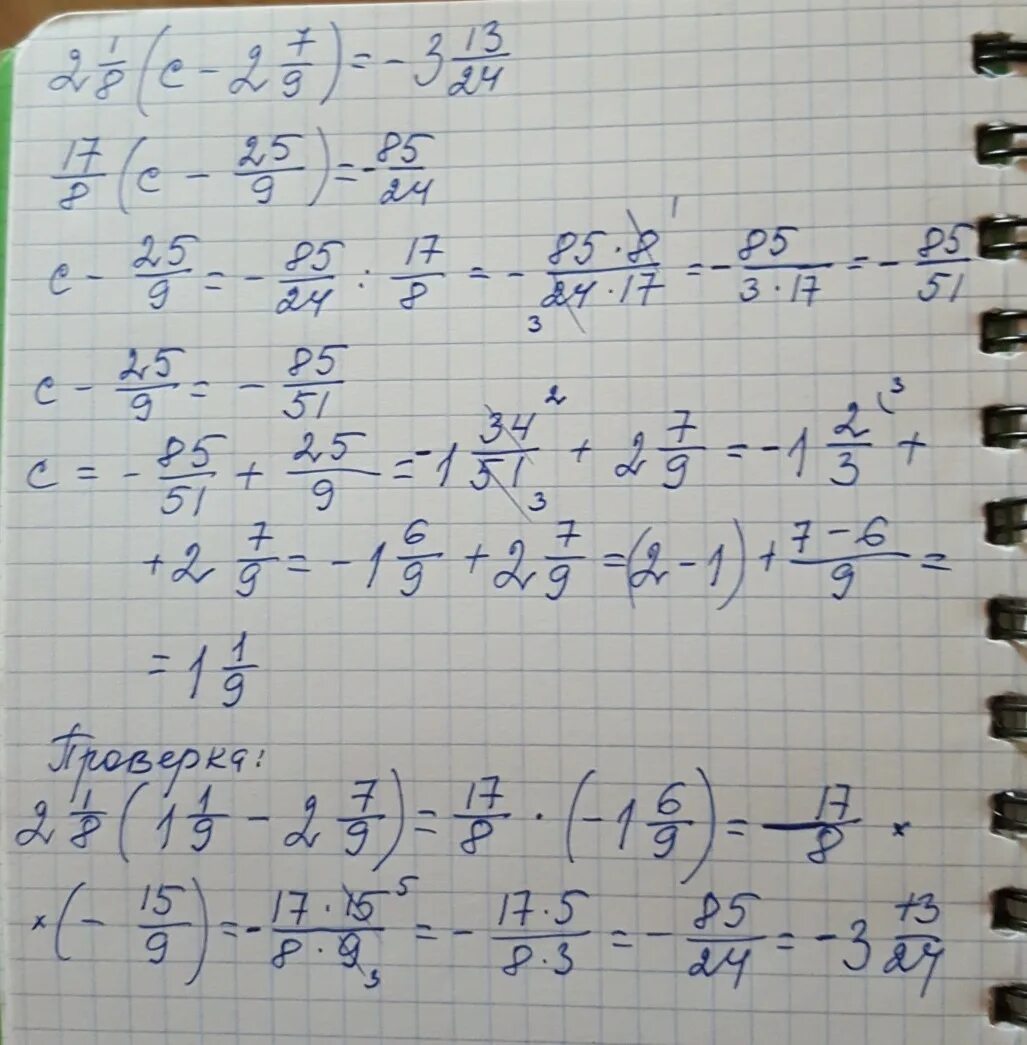 2 1/8 (c - 2 7/9) = - 3 13/24
17/8 (c - 25/9) = - 85/24
c - 25/9 = - 85/24 : 17/8 = - 85 · 8 1 / 24 · 17 3 = - 85 / 3 · 17 = - 85/51
c - 25/9 = - 85/51
c = - 85/51 + 25/9 = - 1 34/51 2 3 + 2 7/9 = - 1 2/3 (3 +
+ 2 7/9 = - 1 6/9 + 2 7/9 = (2 - 1) + 7 - 6 / 9 =
= 1 1/9
Проверка:
2 1/8 (1 1/9 - 2 7/9) = 17/8 · (- 1 6/9) = - 17/8 ×
× (- 15/9) = - 17 · 15 5 / 8 · 9 3 = - 17 · 5 / 8 · 3 = - 85/24 = - 3 13/24